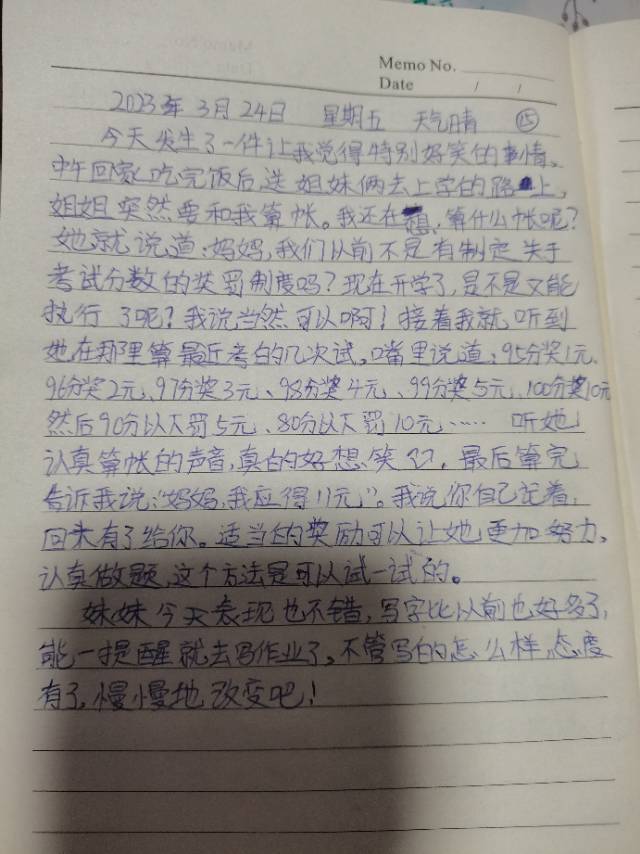 Memo No.
Date / /
2023年3月24日 星期五 天气晴 ⑮
今天发生了一件让我觉得特别好笑的事情。
中午回家吃完饭后,送姐妹俩去上学的路上,
姐姐突然要和我算帐。我还在想,算什么帐呢?
她就说道:妈妈,我们以前不是有制定关于
考试分数的奖罚制度吗?现在开学了,是不是又能
执行了呢?我说当然可以啊!接着我就听到
她在那里算最近考的几次试,嘴里说道:95分奖1元、
96分奖2元、97分奖3元、98分奖4元、99分奖5元、100分奖10元
然后90分以下罚5元、80分以下罚10元…… 听她
认真算帐的声音,真的好想笑,最后算完
告诉我说:“妈妈,我应得11元”。我说你自己记着,
回来有了给你。适当的奖励可以让她更加努力,
认真做题,这个方法是可以试一试的。
妹妹今天表现也不错,写字比以前也好多了,
能一提醒就去写作业了,不管写的怎么样,态度
有了,慢慢地改变吧!